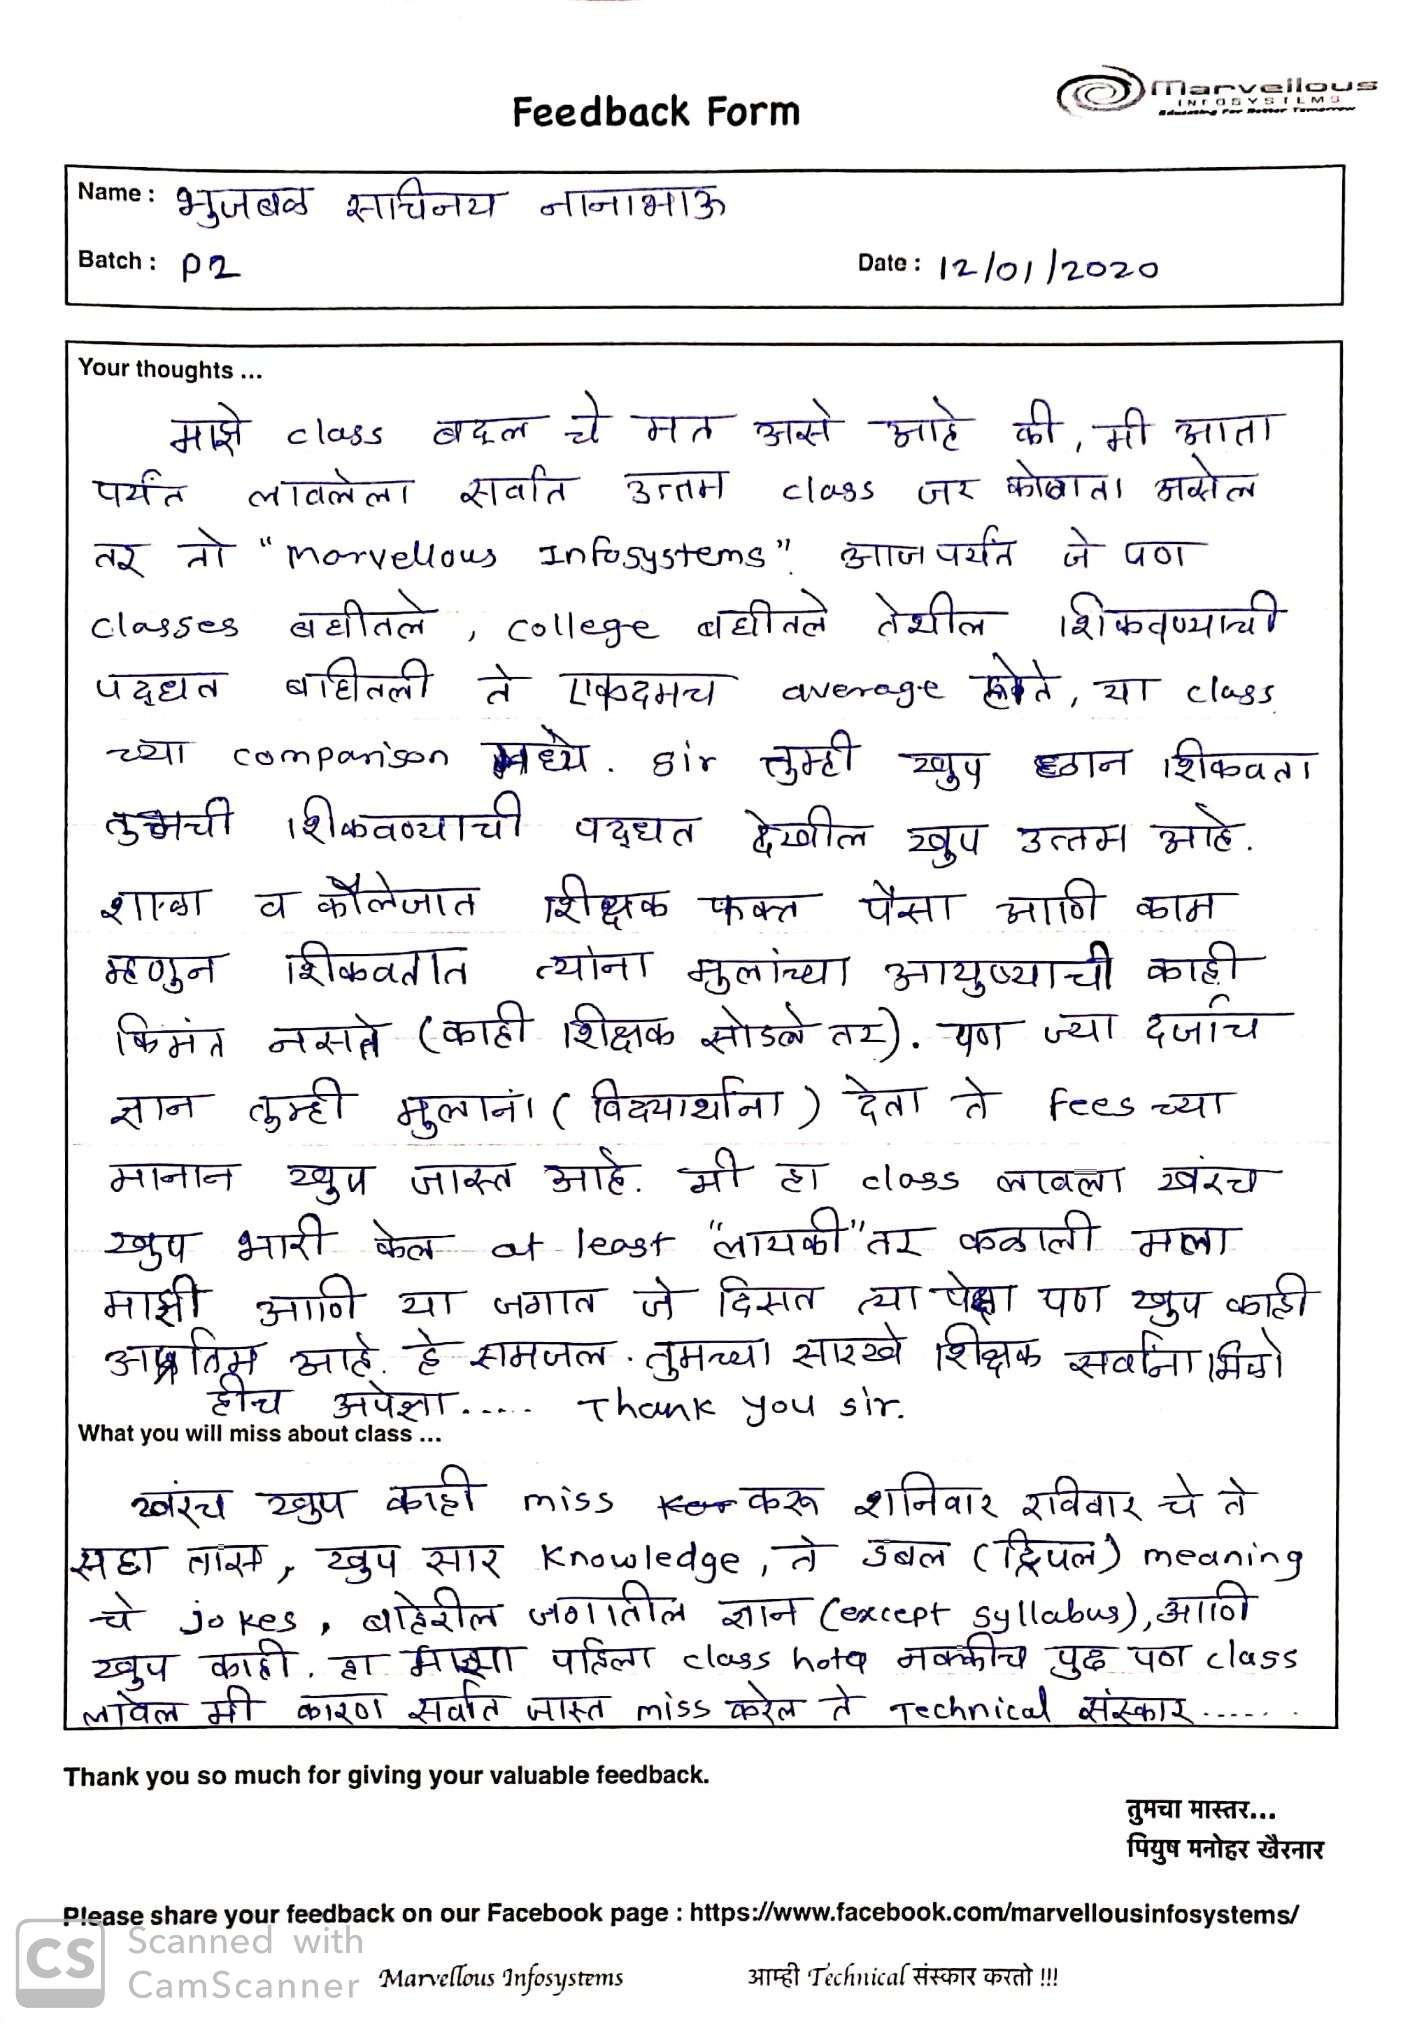 Feedback Form
Marvellous
INFOSYSTEMS
Educating For Better Tomorrow
Name : भुजबळ साचिनय नानाभाऊ
Batch : P2
Date : 12/01/2020
Your thoughts ...
माझे class बद्दल चे मत असे आहे की, मी आता
पर्यंत लावलेला सर्वात उत्तम class जर कोणता असेल
तर तो "Marvellous Infosystems". आजपर्यंत जे पण
classes बघीतले, college बघीतले तेथील शिकवण्याची
पद्धत बघितली ते एकदमच average होते, या class
च्या comparison मध्ये. sir तुम्ही खुप छान शिकवता
तुमची शिकवण्याची पद्धत देखील खुप उत्तम आहे.
शाळा व कॉलेजात शिक्षक फक्त पैसा आणि काम
म्हणुन शिकवतात त्यांना मुलांच्या आयुष्याची काही
किमंत नसते (काही शिक्षक सोडले तर). पण ज्या दर्जाच
ज्ञान तुम्ही मुलानां (विद्यार्थांना) देता ते fees च्या
मानान खुप जास्त आहे. मी हा class लावला खंरच
खुप भारी केल at least "लायकी" तर कळाली मला
माझी आणि या जगात जे दिसत त्या पेक्षा पण खुप काही
अप्रतिम आहे. हे समजल. तुमच्या सारखे शिक्षक सर्वांना मिळो
हीच अपेक्षा..... Thank you sir.
What you will miss about class ...
खंरच खुप काही miss करू शनिवार रविवार चे ते
सहा तास, खुप सार knowledge, ते डबल (ट्रिपल) meaning
चे jokes, बाहेरील जगातील ज्ञान (except syllabus), आणि
खुप काही. हा माझा पहिला class hota नक्कीच पुढ पण class
लावेल मी कारण सर्वात जास्त miss करेल ते Technical संस्कार......
Thank you so much for giving your valuable feedback.
तुमचा मास्तर...
पियुष मनोहर खैरनार
Please share your feedback on our Facebook page : https://www.facebook.com/marvellousinfosystems/
CS Scanned with
CamScanner
Marvellous Infosystems आम्ही Technical संस्कार करतो !!!